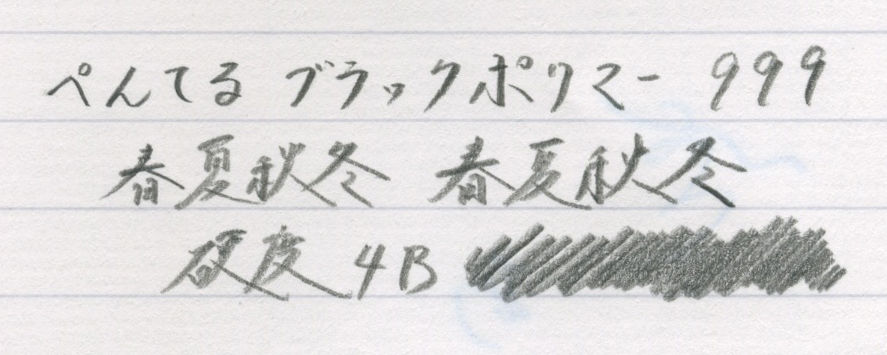 ぺんてる ブラックポリマー 999
春夏秋冬 春夏秋冬
硬度 4B